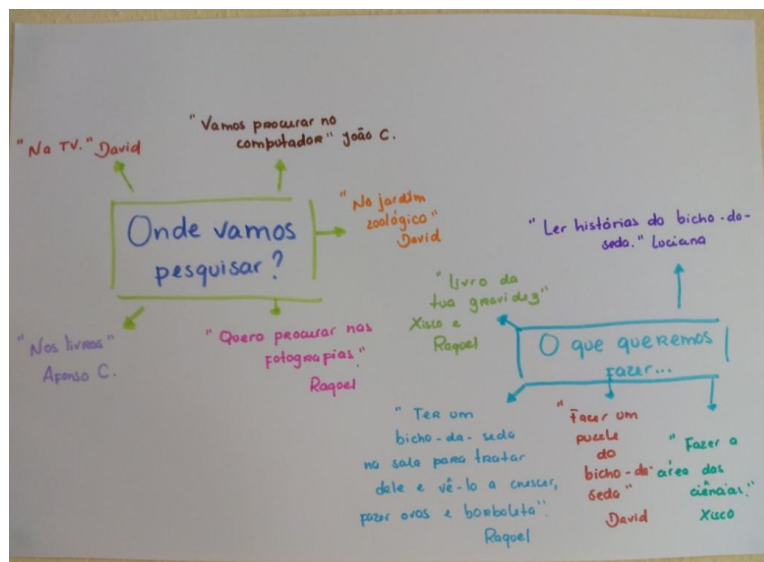 "Na TV." David
"Vamos procurar no
computador" João C.
Onde vamos
pesquisar?
"No jardim
zoológico"
David
"Nos livros"
Afonso C.
"Quero procurar nas
fotografias."
Raquel
"Ler histórias do bicho-da-
seda." Luciana
"Livro da
tua gravidez"
Xisco e
Raquel
O que queremos
fazer...
"Ter um
bicho-da-seda
na sala para tratar
dele e vê-lo a crescer,
fazer ovos e borboleta".
Raquel
"Fazer um
puzzle
do
bicho-da-
seda"
David
"Fazer a
área das
ciências."
Xisco